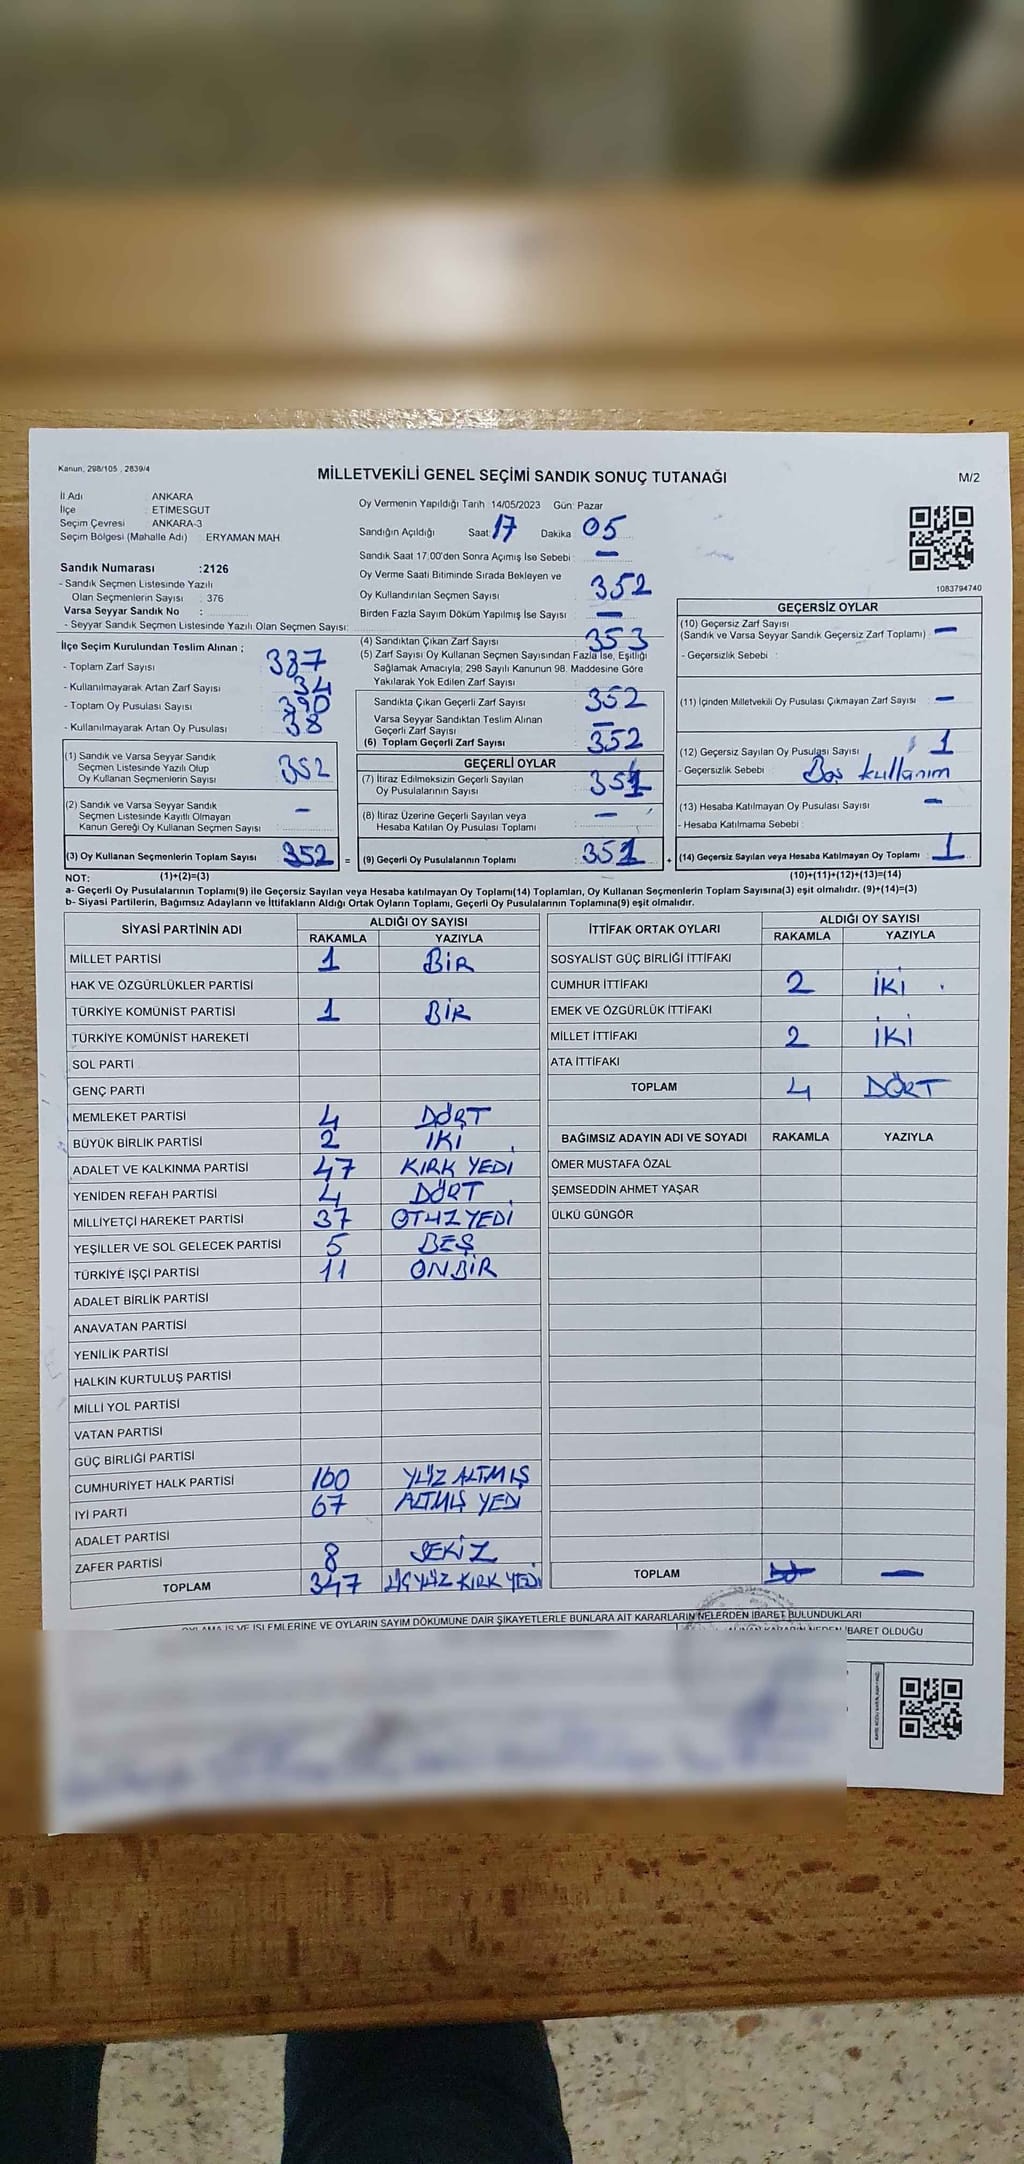 Kanun, 298/105 , 2839/4
MİLLETVEKİLİ GENEL SEÇİMİ SANDIK SONUÇ TUTANAĞI
M/2
İl Adı ANKARA
İlçe : ETIMESGUT
Seçim Çevresi ANKARA-3
Seçim Bölgesi (Mahalle Adı) ERYAMAN MAH
Sandık Numarası :2126
- Sandık Seçmen Listesinde Yazılı
Olan Seçmenlerin Sayısı : 376
Varsa Seyyar Sandık No :
- Seyyar Sandık Seçmen Listesinde Yazılı Olan Seçmen Sayısı:
Oy Vermenin Yapıldığı Tarih 14/05/2023 Gün: Pazar
Sandığın Açıldığı Saat: 17 Dakika 05
Sandık Saat 17.00'den Sonra Açımış İse Sebebi : —
Oy Verme Saati Bitiminde Sırada Bekleyen ve
Oy Kullandırılan Seçmen Sayısı : 352
Birden Fazla Sayım Döküm Yapılmış İse Sayısı : —
1083794740
İlçe Seçim Kurulundan Teslim Alınan ;
- Toplam Zarf Sayısı : 387
- Kullanılmayarak Artan Zarf Sayısı : 34
- Toplam Oy Pusulası Sayısı : 390
- Kullanılmayarak Artan Oy Pusulası : 38
(1) Sandık ve Varsa Seyyar Sandık
Seçmen Listesinde Yazılı Olup
Oy Kullanan Seçmenlerin Sayısı : 352
(2) Sandık ve Varsa Seyyar Sandık
Seçmen Listesinde Kayıtlı Olmayan
Kanun Gereği Oy Kullanan Seçmen Sayısı : —
(3) Oy Kullanan Seçmenlerin Toplam Sayısı : 352 =
(4) Sandıktan Çıkan Zarf Sayısı : 353
(5) Zarf Sayısı Oy Kullanan Seçmen Sayısından Fazla İse, Eşitliği
Sağlamak Amacıyla; 298 Sayılı Kanunun 98. Maddesine Göre
Yakılarak Yok Edilen Zarf Sayısı :
Sandıkta Çıkan Geçerli Zarf Sayısı : 352
Varsa Seyyar Sandıktan Teslim Alınan
Geçerli Zarf Sayısı : —
(6) Toplam Geçerli Zarf Sayısı : 352
GEÇERLİ OYLAR
(7) İtiraz Edilmeksizin Geçerli Sayılan
Oy Pusulalarının Sayısı : 351
(8) İtiraz Üzerine Geçerli Sayılan veya
Hesaba Katılan Oy Pusulası Toplamı : —
(9) Geçerli Oy Pusulalarının Toplamı : 351 +
GEÇERSİZ OYLAR
(10) Geçersiz Zarf Sayısı :
(Sandık ve Varsa Seyyar Sandık Geçersiz Zarf Toplamı) —
- Geçersizlik Sebebi :
(11) İçinden Milletvekili Oy Pusulası Çıkmayan Zarf Sayısı : —
(12) Geçersiz Sayılan Oy Pusulası Sayısı : 1
- Geçersizlik Sebebi : Boş kullanım
(13) Hesaba Katılmayan Oy Pusulası Sayısı : —
- Hesaba Katılmama Sebebi :
(14) Geçersiz Sayılan veya Hesaba Katılmayan Oy Toplamı : 1
NOT: (1)+(2)=(3) (10)+(11)+(12)+(13)=(14)
a- Geçerli Oy Pusulalarının Toplamı(9) ile Geçersiz Sayılan veya Hesaba katılmayan Oy Toplamı(14) Toplamları, Oy Kullanan Seçmenlerin Toplam Sayısına(3) eşit olmalıdır. (9)+(14)=(3)
b- Siyasi Partilerin, Bağımsız Adayların ve İttifakların Aldığı Ortak Oyların Toplamı, Geçerli Oy Pusulalarının Toplamına(9) eşit olmalıdır.
SİYASİ PARTİNİN ADI ALDIĞI OY SAYISI
RAKAMLA YAZIYLA
MİLLET PARTİSİ 1 BİR
HAK VE ÖZGÜRLÜKLER PARTİSİ
TÜRKİYE KOMÜNİST PARTİSİ 1 BİR
TÜRKİYE KOMÜNİST HAREKETİ
SOL PARTİ
GENÇ PARTİ
MEMLEKET PARTİSİ 4 DÖRT
BÜYÜK BİRLİK PARTİSİ 2 İKİ
ADALET VE KALKINMA PARTİSİ 47 KIRK YEDİ
YENİDEN REFAH PARTİSİ 4 DÖRT
MİLLİYETÇİ HAREKET PARTİSİ 37 OTUZ YEDİ
YEŞİLLER VE SOL GELECEK PARTİSİ 5 BEŞ
TÜRKİYE İŞÇİ PARTİSİ 11 ONBİR
ADALET BİRLİK PARTİSİ
ANAVATAN PARTİSİ
YENİLİK PARTİSİ
HALKIN KURTULUŞ PARTİSİ
MİLLİ YOL PARTİSİ
VATAN PARTİSİ
GÜÇ BİRLİĞİ PARTİSİ
CUMHURİYET HALK PARTİSİ 160 YÜZ ALTMIŞ
İYİ PARTİ 67 ALTMIŞ YEDİ
ADALET PARTİSİ
ZAFER PARTİSİ 8 SEKİZ
TOPLAM 347 ÜÇ YÜZ KIRK YEDİ
İTTİFAK ORTAK OYLARI ALDIĞI OY SAYISI
RAKAMLA YAZIYLA
SOSYALİST GÜÇ BİRLİĞİ İTTİFAKI
CUMHUR İTTİFAKI 2 İKİ
EMEK VE ÖZGÜRLÜK İTTİFAKI
MİLLET İTTİFAKI 2 İKİ
ATA İTTİFAKI
TOPLAM 4 DÖRT
BAĞIMSIZ ADAYIN ADI VE SOYADI RAKAMLA YAZIYLA
ÖMER MUSTAFA ÖZAL
ŞEMSEDDİN AHMET YAŞAR
ÜLKÜ GÜNGÖR
TOPLAM —
İŞLEMLERİNE VE OYLARIN SAYIM DÖKÜMÜNE DAİR ŞİKAYETLERLE BUNLARA AİT KARARLARIN NELERDEN İBARET BULUNDUKLARI
İBARET OLDUĞU